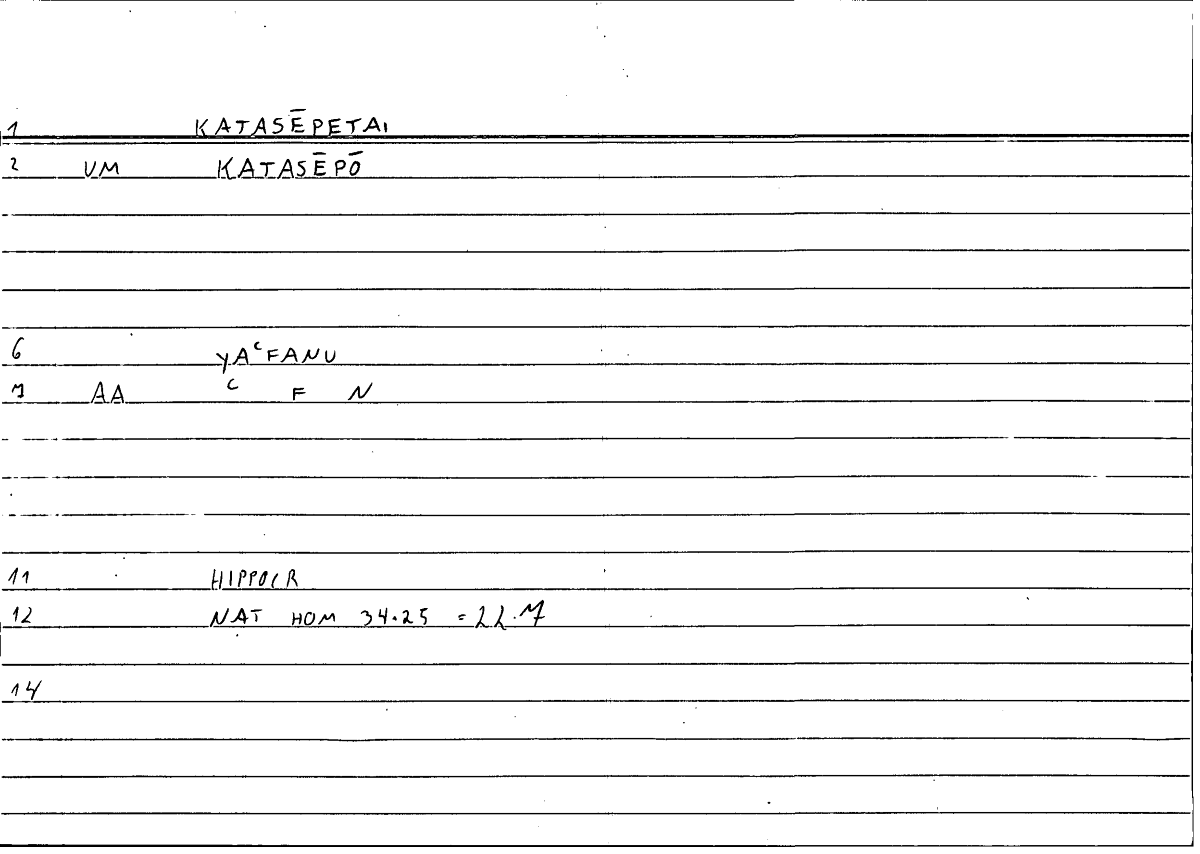 1 KATASĒPETAI
2 VM KATASĒPŌ
6 yAᶜFANU
7 AA ᶜ F N
11 HIPPOCR
12 NAT HOM 34.25 = 22.7
14